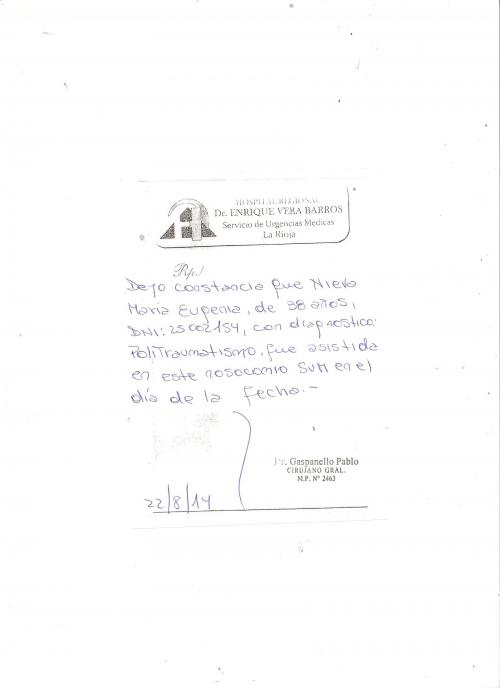 HOSPITAL REGIONAL
Dr. ENRIQUE VERA BARROS
Servicio de Urgencias Medicas
La Rioja
Rp./
Dejo constancia que Nieva
María Eugenia, de 38 años,
DNI: 25002154, con diagnostico:
PoliTraumatismo, fue asistida
en este nosocomio SUM en el
día de la fecha.-
Dr. Gaspanello Pablo
CIRUJANO GRAL.
M.P. Nº 2463
22/8/14